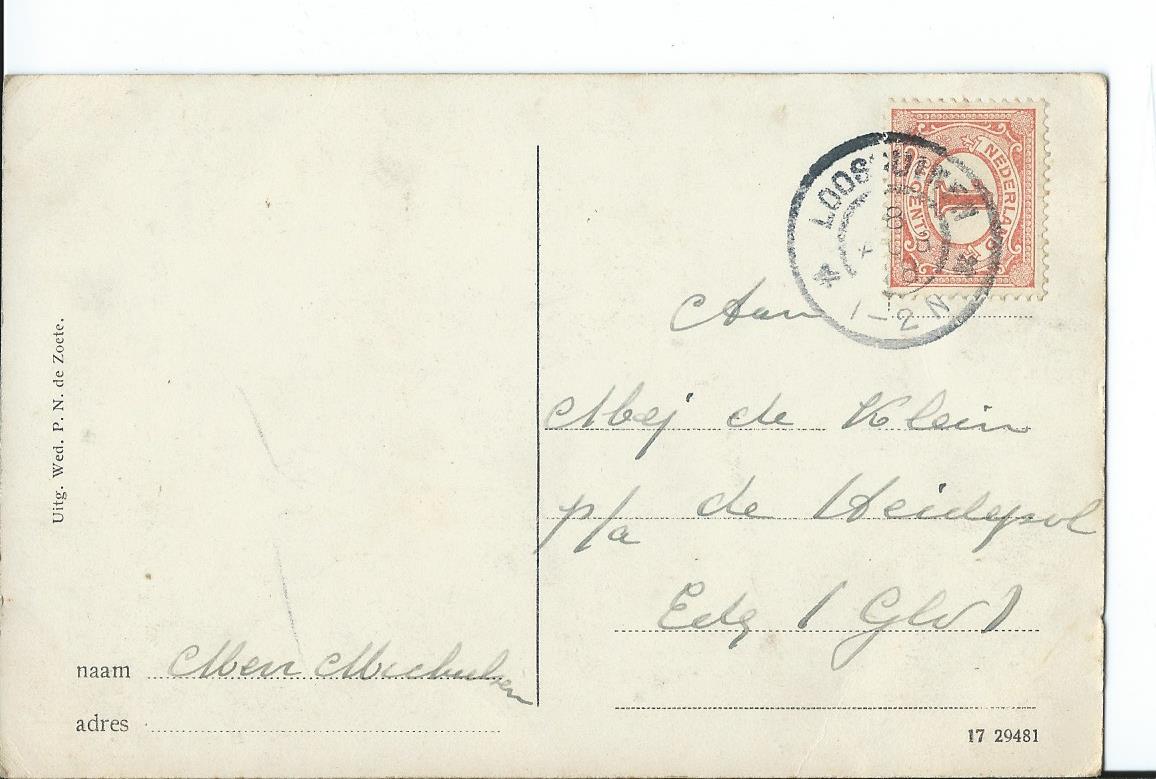 Uitg. Wed. P. N. de Zoete.
NEDERLAND
1
CENT
LOOSDUINEN
1-2N
Aan
Mej de Klein
p/a de Heidepol
Ede (Gld)
naam Men
adres
17 29481